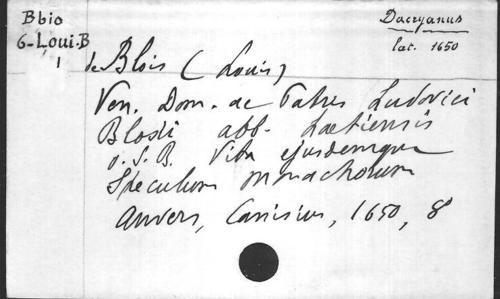 Bbio
6-Loui.B
1
Dacryanus
lat. 1650
de Blois (Louis)
Ven. Dom. ac Patris Ludovici
Blosii abb. Laetiensis
o.S.B. Vita ejusdemque
Speculum monachorum
Anvers, Canisius, 1650, 8°